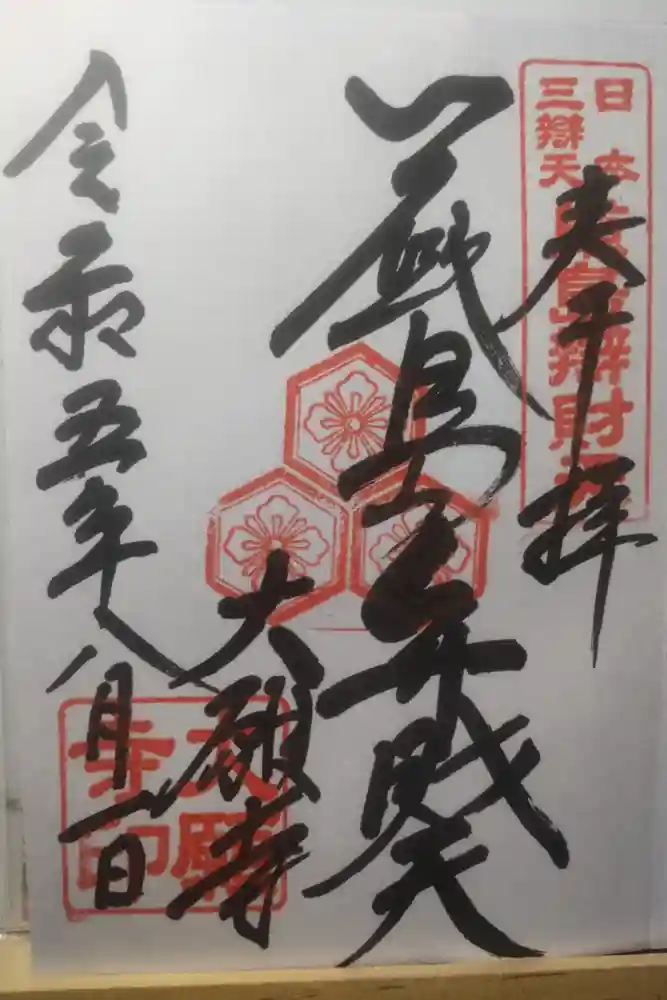 奉拝
日本
三辯天
厳島辯財天
厳島弁財天
大願寺
大願
寺印
令和五年八月一日